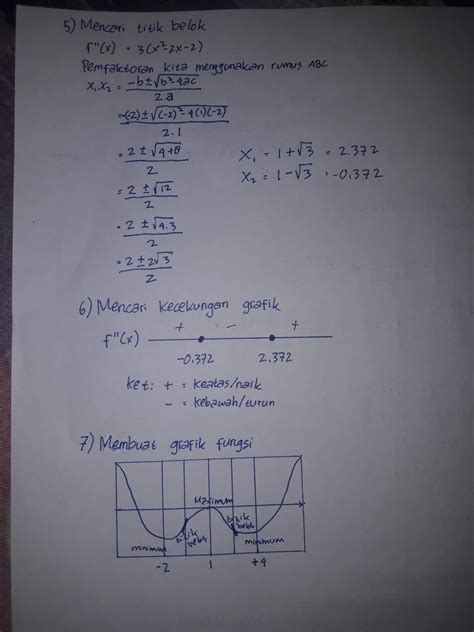 5) Mencari titik belok
f"(x) = 3(x²-2x-2)
Pemfaktoran kita menggunakan rumus ABC
X₁,X₂ = -b±√b²-4ac / 2.a
= -(-2)±√(-2)²-4(1)(-2) / 2.1
= 2±√4+8 / 2
X₁ = 1+√3 = 2.372
= 2±√12 / 2
X₂ = 1-√3 = -0.372
= 2±√4.3 / 2
= 2±2√3 / 2
6) Mencari kecekungan grafik
+ - +
f"(x)
-0.372 2.372
ket: + = keatas/naik
- = kebawah/turun
7) Membuat grafik fungsi
Maximum
titik belok
titik belok
minimum
minimum
-2 1 +4